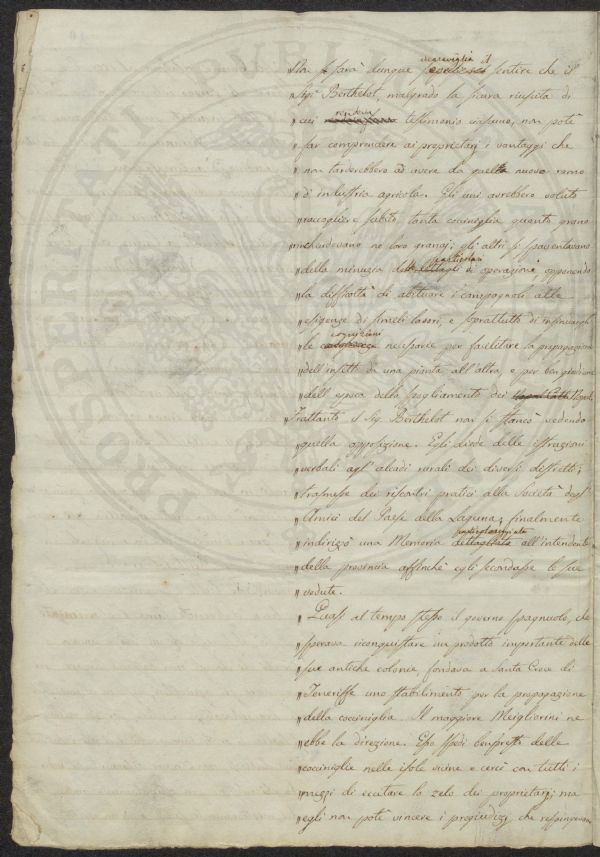 meraviglia il
„Non si farà dunque sentire che il
„Sigr Berthelot, malgrado la sicura riuscita di
rendeva
„cui testimonio ciascuno, non potè
„far comprendere ai proprietarj i vantaggi che
„non tarderebbero ad avere da questo nuovo ramo
„d'industria agricola. Gli uni avrebbero voluto
„raccogliere subito tanta cocciniglia quanto grano
„richiudevano ne loro granaj; gli altri si spaventavano
„della minuzia di operazione opponendo
„la difficoltà di abituare i campagnoli alle
„esigenze di simili lavori, e soprattutto di
cognizioni
„le necessarie per facilitare la propagazione
„dell'insetto da una pianta all'altra, e per ben
„dell'epoca della spogliamento dei
„Frattanto il Sig. Berthelot non si stancò vedendo
„quella opposizione. Egli diede delle istruzioni
„verbali agl'alcadi rurali dei diversi distretti;
„trasmise dei riscontri pratici alla Società degl'
„Amici del Paese della Laguna; finalmente
particolareggiata
„indirizzò una Memoria dettagliata all'intendente
„della provincia affinchè egli secondasse le sue
„vedute.
„Quasi al tempo stesso il governo spagnuolo, che
„sperava riconquistare un prodotto importante delle
„sue antiche colonie, fondava a Santa Croce di
„Teneriffe uno stabilimento per la propagazione
„della cocciniglia. Il maggiore Meigliorini ne
„ebbe la direzione. Esso spedì benpresto delle
„cocciniglie nelle isole vicine e cercò con tutti i
„mezzi di eccitare lo zelo dei proprietarj; ma
„egli non potè vincere i pregiudizj, che respingevano